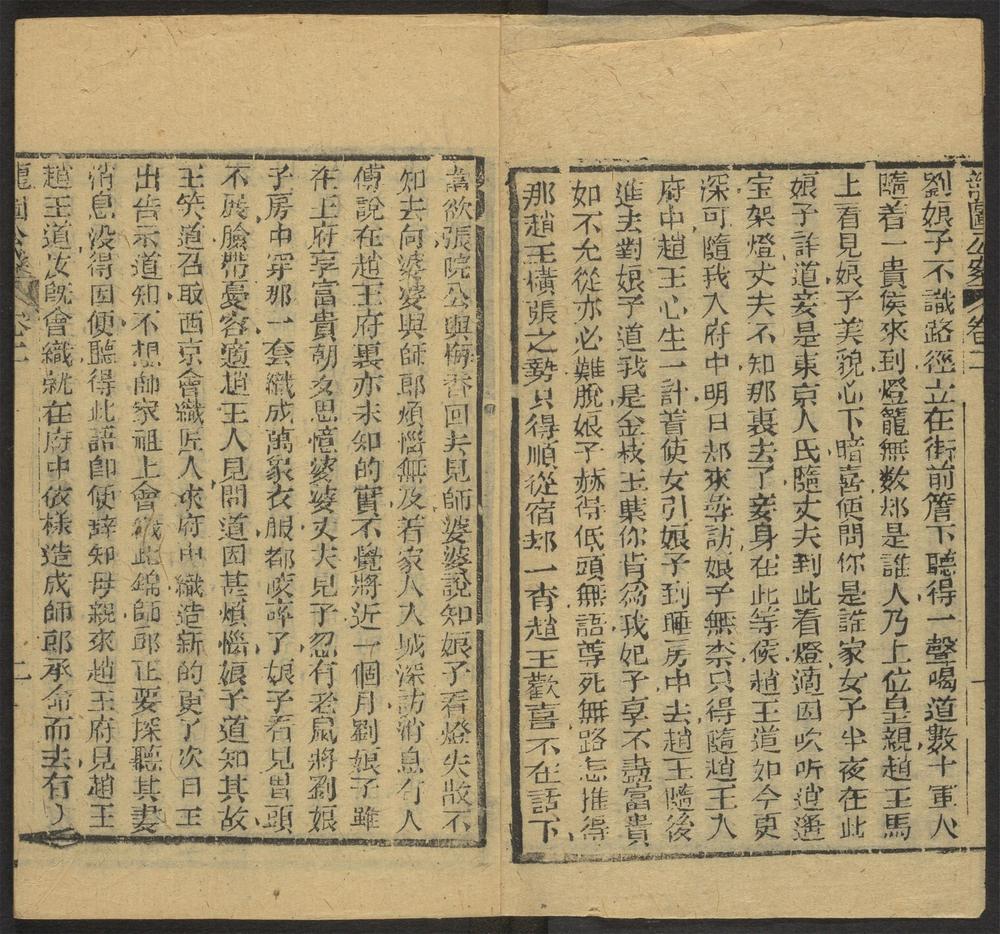 龍圖公案 卷二
劉娘子不識路徑立在街前簷下聽得一聲喝道數十軍人
隨着一貴侯來到燈籠無数却是誰人乃上位皇親趙王馬
上看見娘子美貌心下暗喜便問你是誰家女子半夜在此
娘子詐道妾是東京人氏隨丈夫到此看燈適因吹折逍遥
宝架燈丈夫不知那裏去了妾身在此等侯趙王道如今更
深可隨我入府中明日却來尋訪娘子無柰只得隨趙王入
府中趙王心生一計着使女引娘子到睡房中去趙王隨後
進去對娘子道我是金枝玉葉你肯為我妃子享不盡富貴
如不允從亦必難脫娘子赫得低頭無語尊死無路怎推得
那趙王橫張之勢只得順從宿却一宵趙王歡喜不在話下
當欲張院公與梅香回去見師婆婆說知娘子看燈失散不
知去向婆婆與師郎煩惱無及着家人入城深訪消息有人
傳說在趙王府裏亦未知的實不覺將近一個月劉娘子雖
在王府享富貴朝夕思憶婆婆丈夫兒子忽有老鼠將劉娘
子房中穿那一套織成萬象衣服都咬碎了娘子看見眉頭
不展臉帶憂容適趙王人見問道因甚煩惱娘子道知其故
王笑道召取西京會織匠人來府中織造新的更了次日王
出告示道知不想師家祖上會織此錦師郎正要探聽其妻
消息没得因便聽得此語即便辞知母親來趙王府見趙王
趙王道汝既會織就在府中依樣造成師郎承命而去有
龍圖公案 卷二